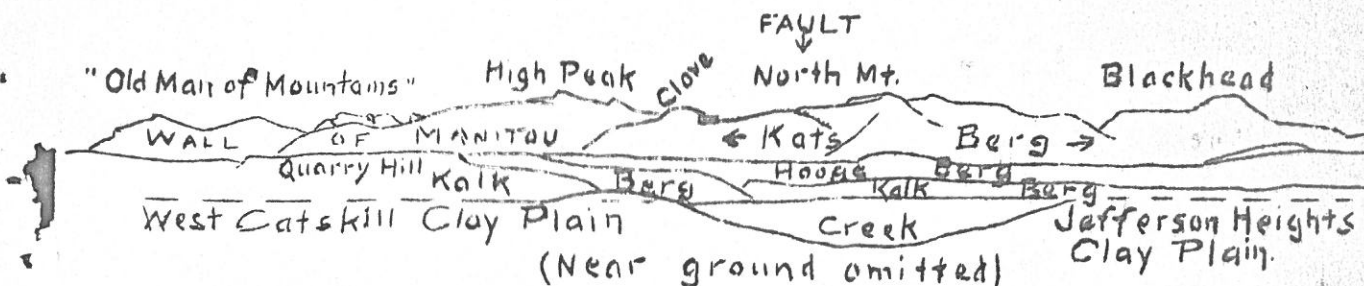 FAULT
"Old Man of Mountains" High Peak Clove North Mt. Blackhead
WALL OF MANITOU ← Kats Berg →
Quarry Hill Kalk Berg Hooge Berg
Kalk Berg
West Catskill Clay Plain Creek Jefferson Heights
Clay Plain.
(Near ground omitted)